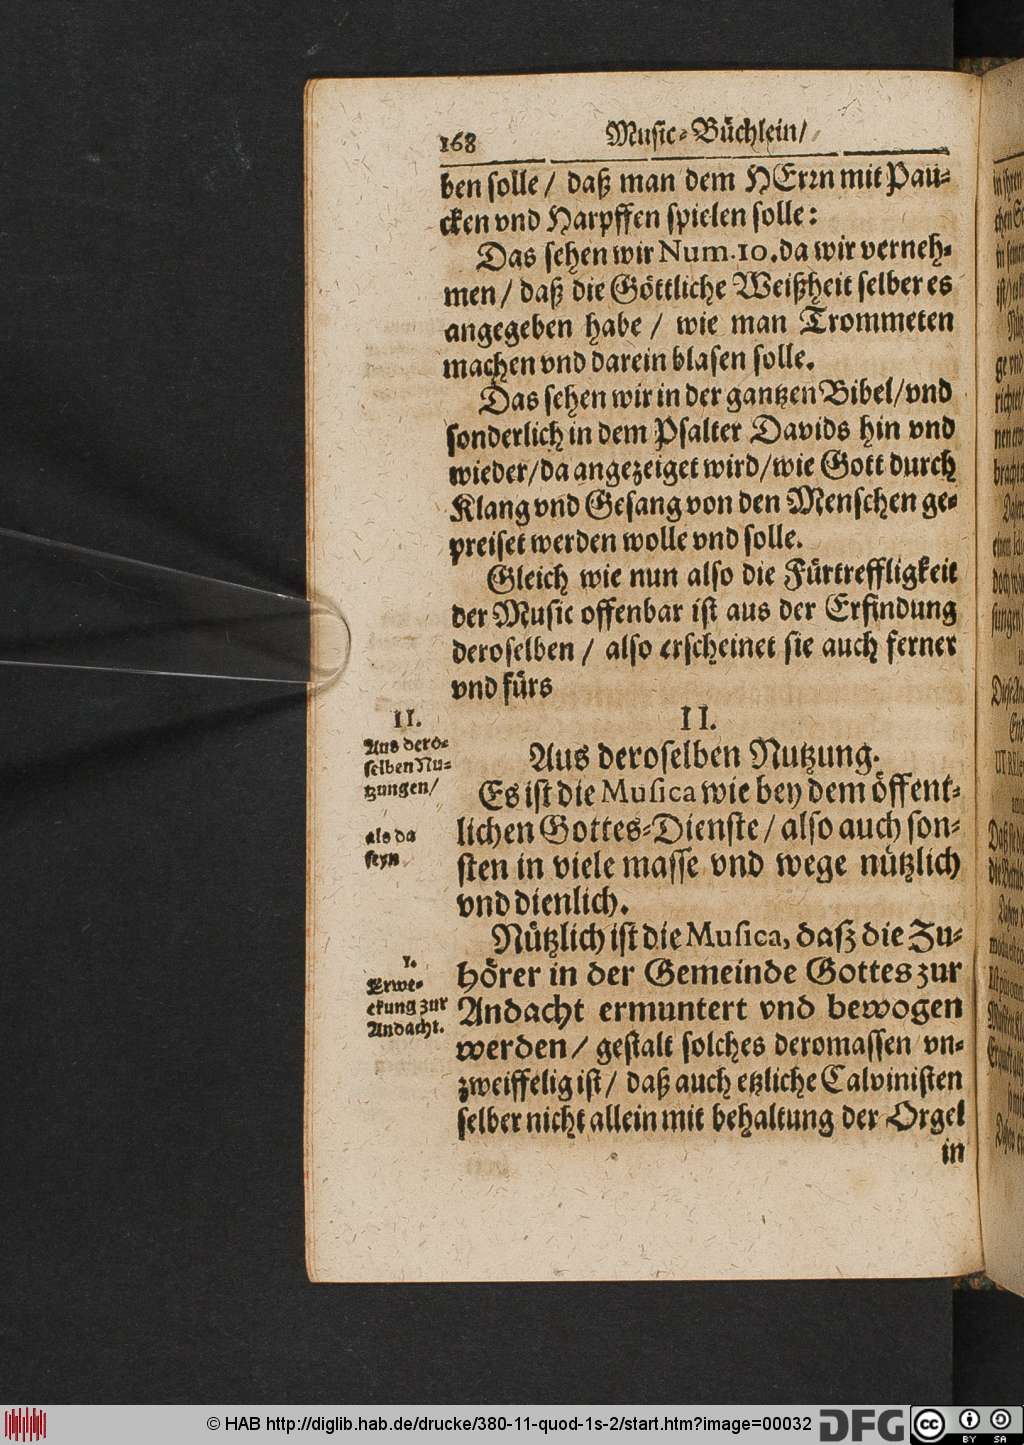 168
Music-Büchlein/
ben solle / daß man dem HErrn mit Pau-
cken vnd Harpffen spielen solle:
Das sehen wir Num. 10. da wir verneh-
men / daß die Göttliche Weißheit selber es
angegeben habe / wie man Trommeten
machen vnd darein blasen solle.
Das sehen wir in der gantzen Bibel/vnd
sonderlich in dem Psalter Davids hin vnd
wieder/da angezeiget wird/wie Gott durch
Klang vnd Gesang von den Menschen ge-
preiset werden wolle vnd solle.
Gleich wie nun also die Fürtreffligkeit
der Music offenbar ist aus der Erfindung
deroselben / also erscheinet sie auch ferner
vnd fürs
II.
Aus dero-
selben Nu-
tzungen/
als da
seyn
II.
Aus deroselben Nutzung.
Es ist die Musica wie bey dem öffent-
lichen Gottes-Dienste / also auch son-
sten in viele masse vnd wege nützlich
vnd dienlich.
1.
Erwe-
ckung zur
Andacht.
Nützlich ist die Musica, daß die Zu-
hörer in der Gemeinde Gottes zur
Andacht ermuntert vnd bewogen
werden / gestalt solches deromassen vn-
zweiffelig ist / daß auch etzliche Calvinisten
selber nicht allein mit behaltung der Orgel
in
© HAB http://diglib.hab.de/drucke/380-11-quod-1s-2/start.htm?image=00032
DFG
cc
BY SA